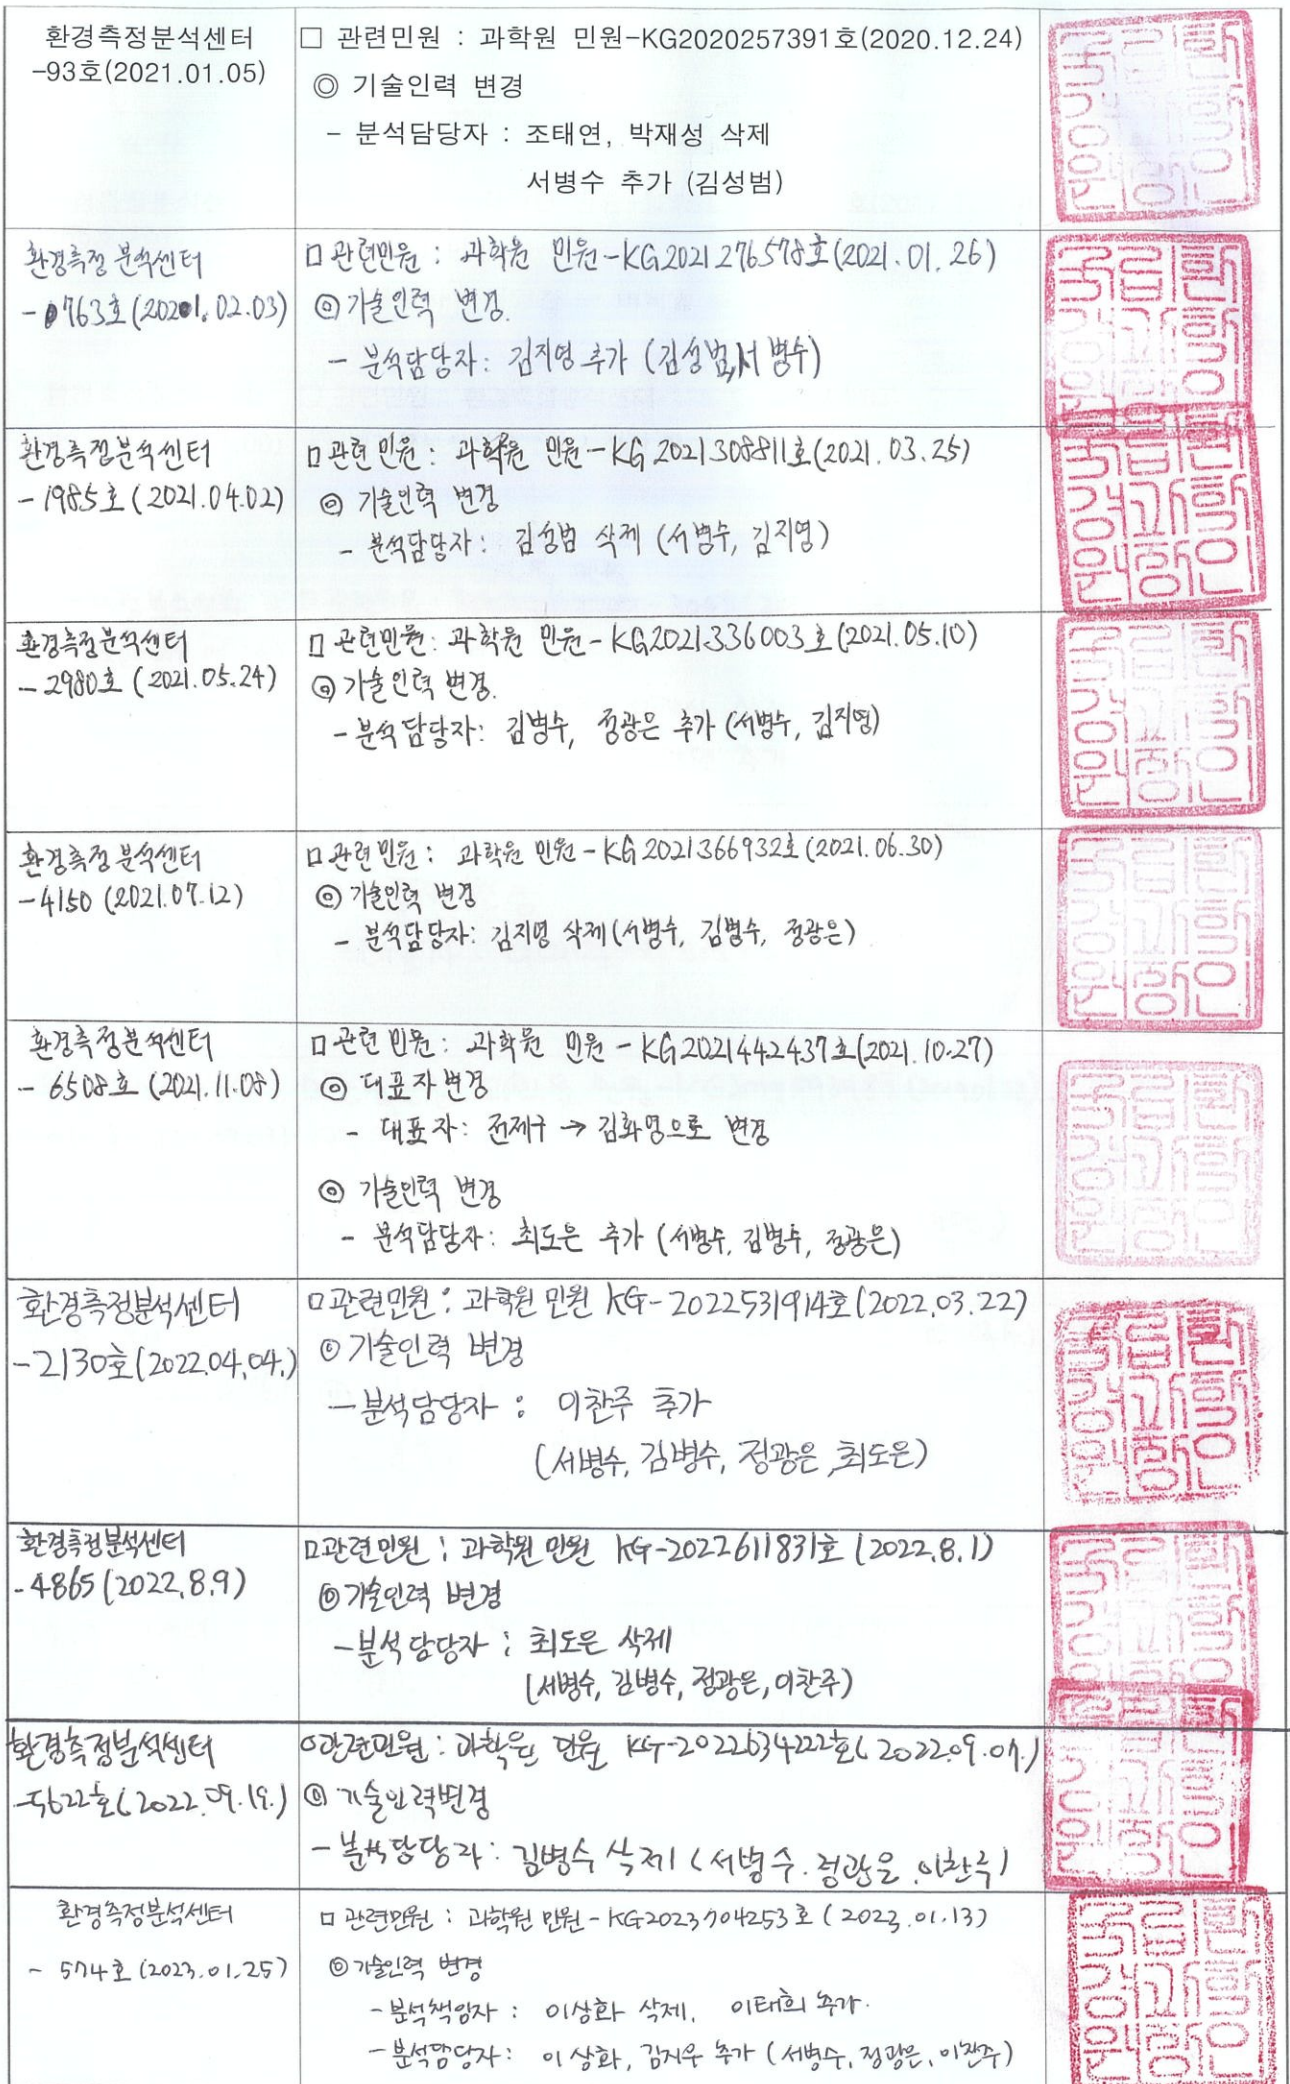 환경측정분석센터
-93호(2021.01.05)
□ 관련민원 : 과학원 민원-KG2020257391호(2020.12.24)
◎ 기술인력 변경
- 분석담당자 : 조태연, 박재성 삭제
서병수 추가 (김성범)
환경측정분석센터
-0763호(2021.02.03)
□ 관련민원 : 과학원 민원-KG2021276578호(2021.01.26)
◎ 기술인력 변경.
- 분석담당자: 김지영 추가 (김성범,서병수)
환경측정분석센터
-1985호(2021.04.02)
□ 관련민원: 과학원 민원-KG2021308811호(2021.03.25)
◎ 기술인력 변경
- 분석담당자: 김성범 삭제 (서병수, 김지영)
환경측정분석센터
-2980호(2021.05.24)
□ 관련민원: 과학원 민원-KG2021336003호(2021.05.10)
◎ 기술인력 변경.
- 분석담당자: 김병수, 정광은 추가 (서병수, 김지영)
환경측정분석센터
-4150 (2021.07.12)
□ 관련민원: 과학원 민원-KG2021366932호(2021.06.30)
◎ 기술인력 변경
- 분석담당자: 김지영 삭제(서병수, 김병수, 정광은)
환경측정분석센터
- 6508호 (2021.11.08)
□ 관련민원: 과학원 민원-KG2021442437호(2021.10.27)
◎ 대표자변경
- 대표자: 전제구 → 김화영으로 변경
◎ 기술인력 변경
- 분석담당자: 최도은 추가 (서병수, 김병수, 정광은)
환경측정분석센터
-2130호(2022.04.04.)
□ 관련민원: 과학원 민원 KG-2022531914호(2022.03.22)
◎ 기술인력 변경
- 분석담당자 : 이찬주 추가
(서병수, 김병수, 정광은, 최도은)
환경측정분석센터
-4865(2022.8.9)
□ 관련민원 : 과학원 민원 KG-2022611831호(2022.8.1)
◎ 기술인력 변경
- 분석담당자 : 최도은 삭제
(서병수, 김병수, 정광은, 이찬주)
환경측정분석센터
-5622호(2022.09.19.)
□ 관련민원: 과학원 민원 KG-2022634222호(2022.09.07.)
◎ 기술인력변경
- 분석담당자: 김병수 삭제 (서병수.정광은.이찬주)
환경측정분석센터
- 574호 (2023.01.25)
□ 관련민원 : 과학원 민원-KG2023704253호 (2023.01.13)
◎ 기술인력 변경
- 분석책임자 : 이상화 삭제, 이태희 추가.
- 분석담당자: 이상화, 김지우 추가 (서병수, 정광은, 이찬주)